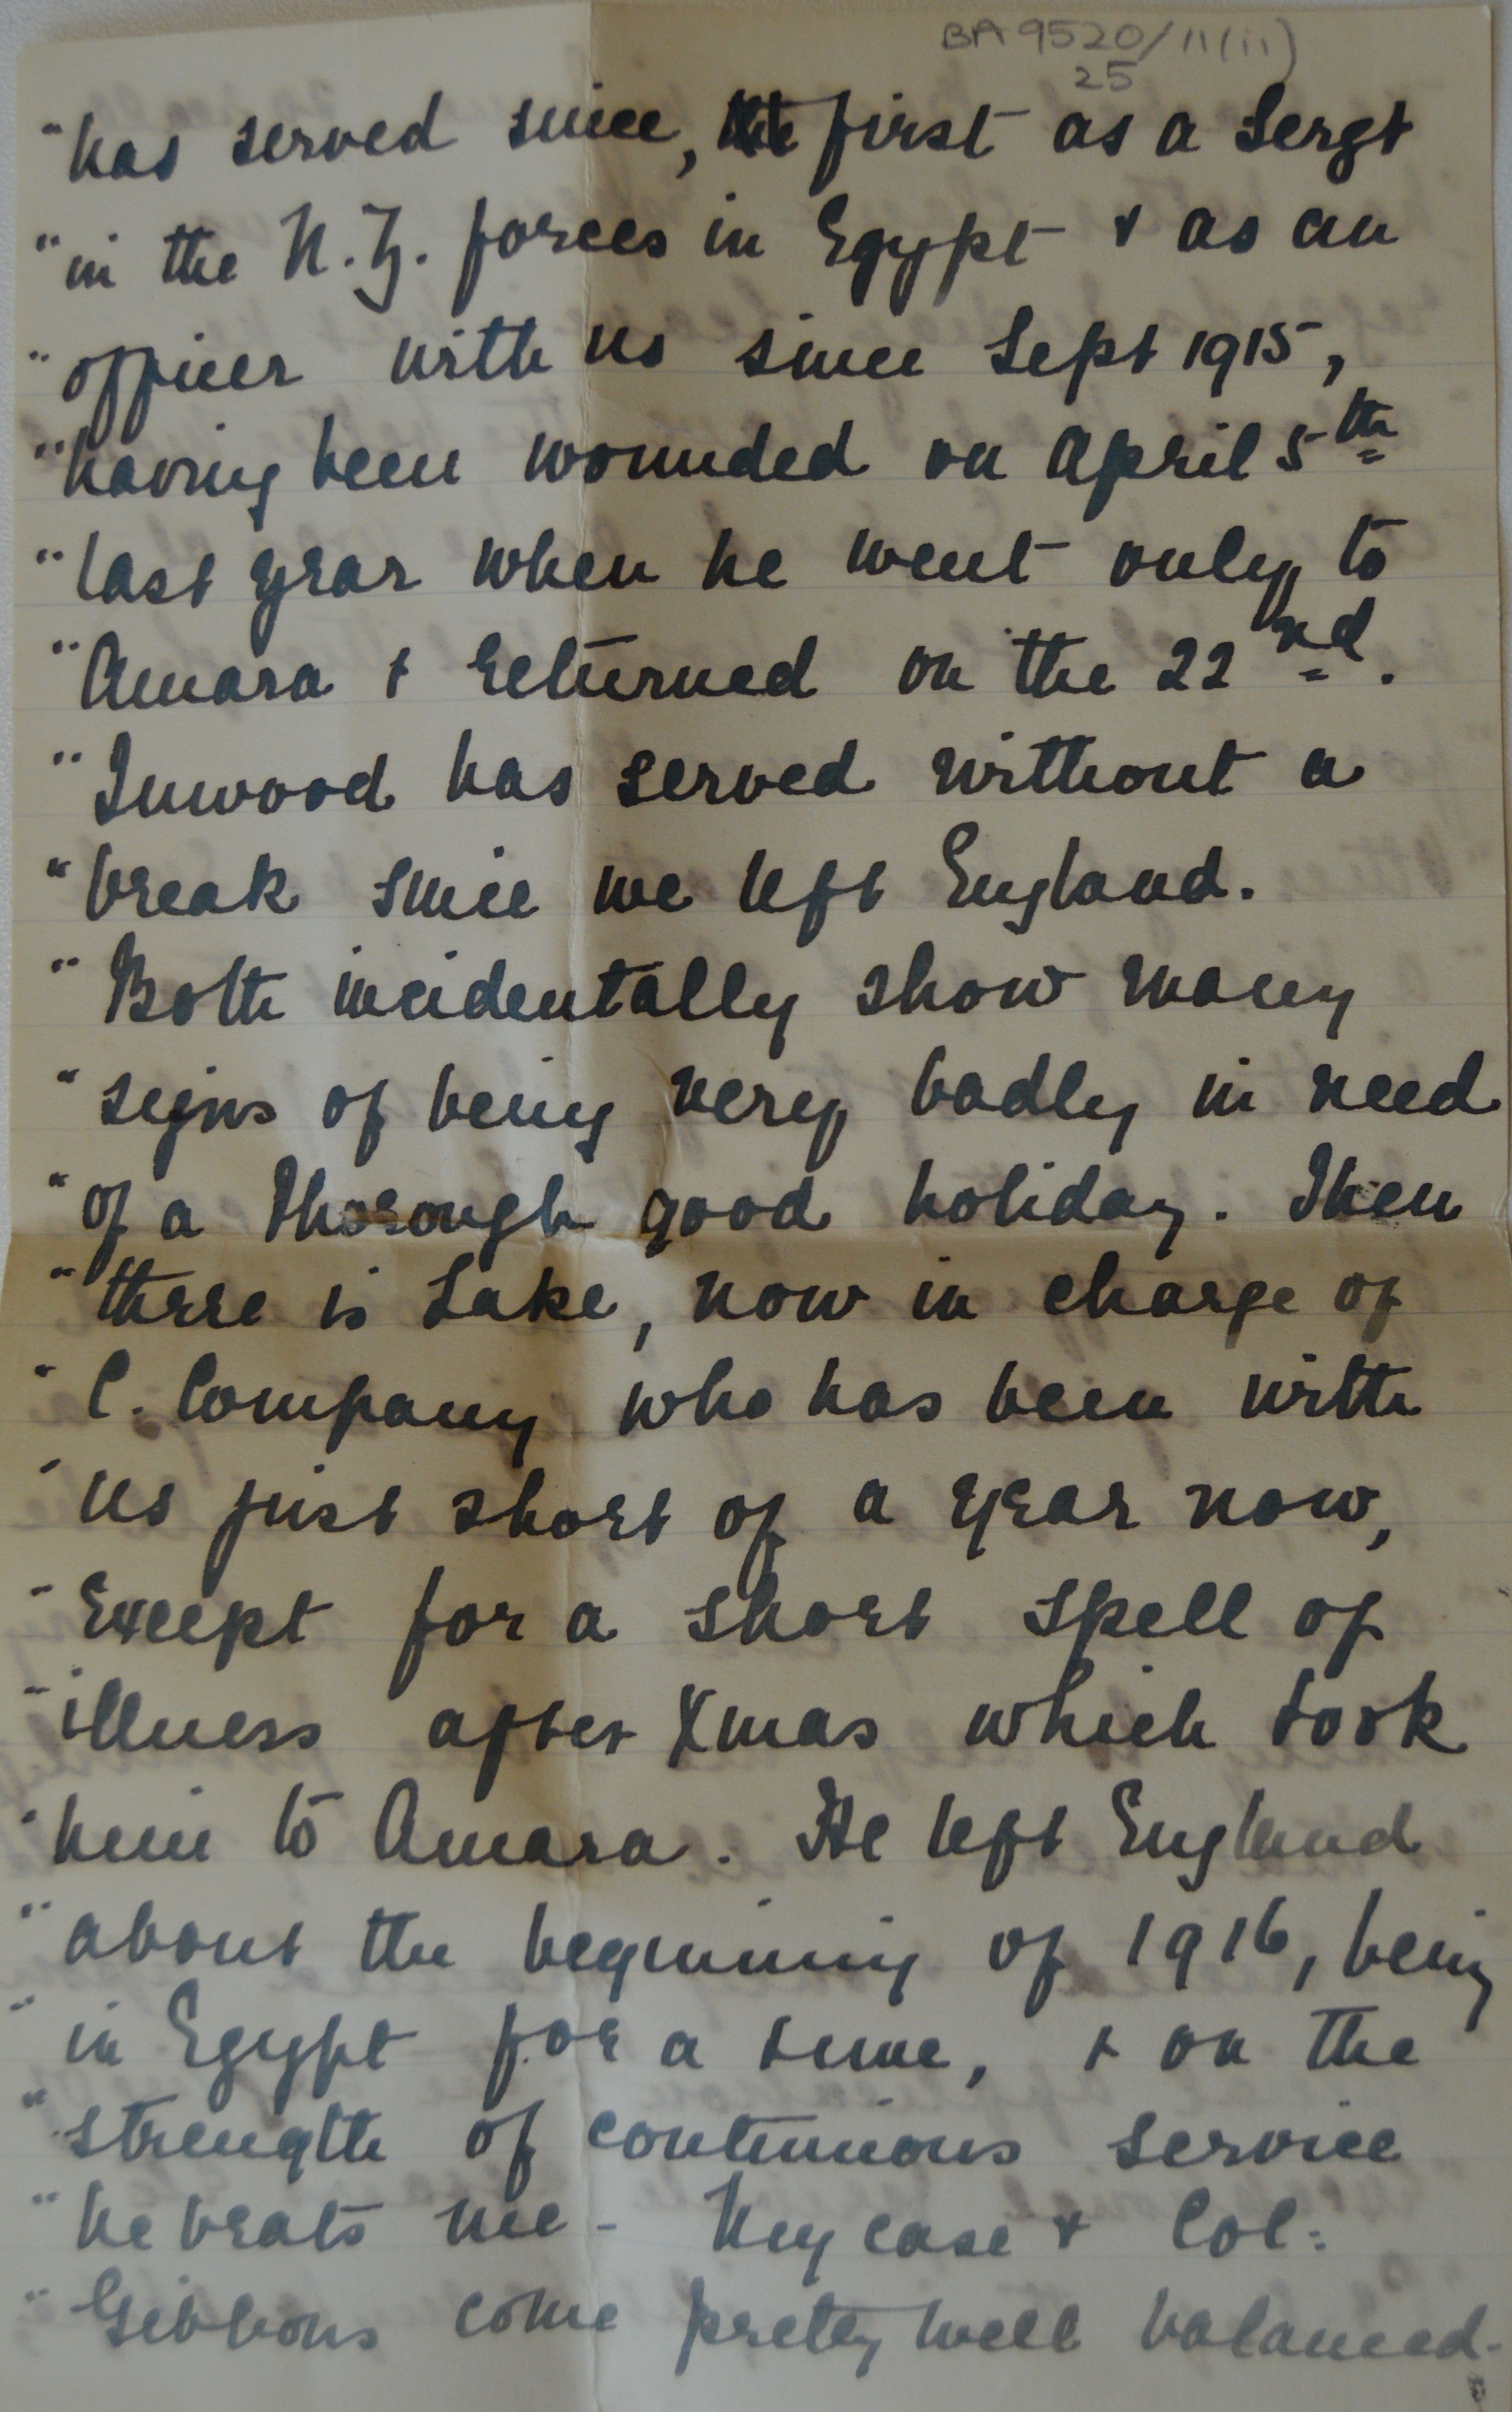 BA 9520/11(ii)
25
"has served since, first as a Sergt
"in the N.Z. forces in Egypt & as an
"officer with us since Sept 1915,
"having been wounded on April 5th
"last year when he went only to
"Amara & returned on the 22nd.
"Inwood has served without a
"break since we left England.
"Both incidentally show many
"signs of being very badly in need
"of a thorough good holiday. Then
"there is Lake, now in charge of
"C. Company who has been with
"us just short of a year now,
"Except for a short spell of
"illness after Xmas which took
"him to Amara. He left England
"about the beginning of 1916, being
"in Egypt for a time, & on the
"strength of continuous service
"he beats me - My case & Col:
"Gibbons come pretty well balanced-